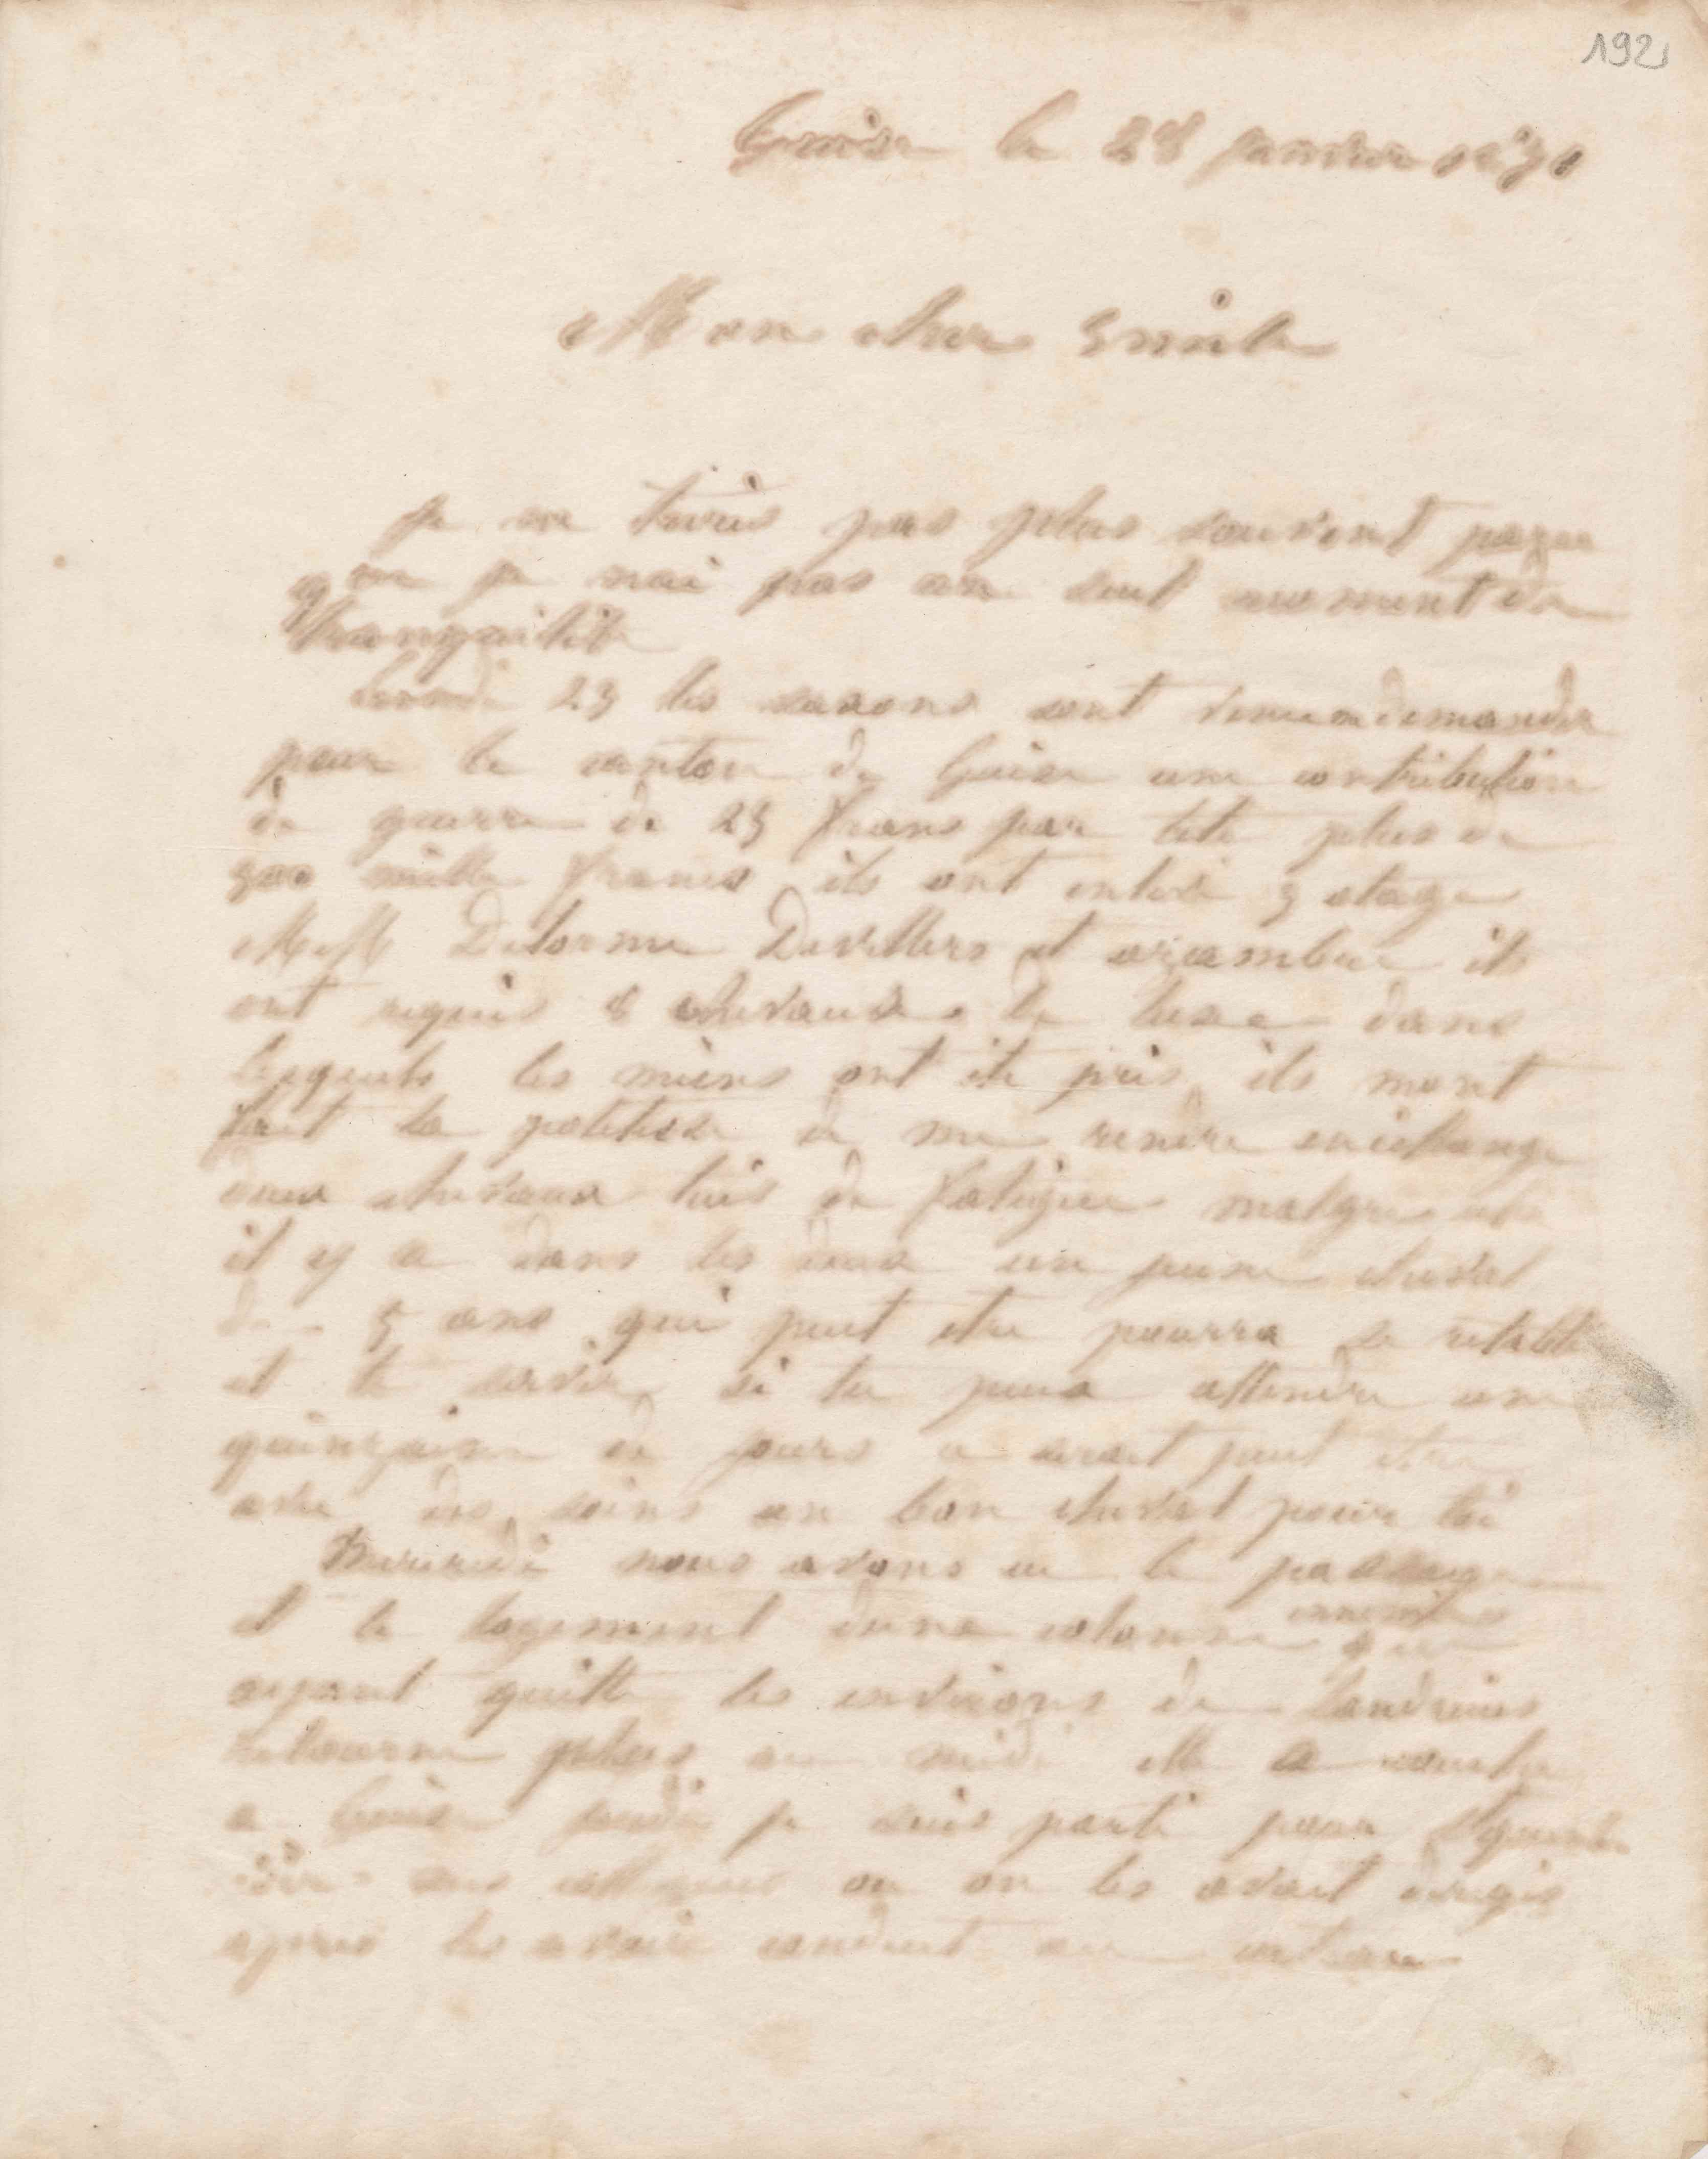 192
Guise le 28 janvier 1871
Mon cher Emile
je ne t'ecris pas plus souvent parce
que je nai pas un seul moment de
tranquilité
Lundi 23 les saxons sont venu demander
pour le canton de Guise une contribution
de guerre de 25 francs par tete plus de
mille francs ils ont enlevé 3 otage
MM Delorme Devillers et ils
ont requis 8 chevaux de luxe dans
lesquels les miens ont été pris ils mont
fait la politesse de me rendre en echange
deux chevaux tués de fatigue malgré cela
il y a dans les deux un jeune cheval
de 5 ans qui peut etre pourra se rétablir
et te servir si tu peux attendre une
quinzaine de jours ce serait peut etre
avec des soins un bon cheval pour toi
Mercredi nous avons eu le passage
et le logement dune colonne ennemie qui
ayant quitté les environs de Landrecies
retourne plus au midi elle a couché
a Guise jeudi je suis parti pour St quentin
voir nos où on les avait dirigés
apres les avoir conduit au